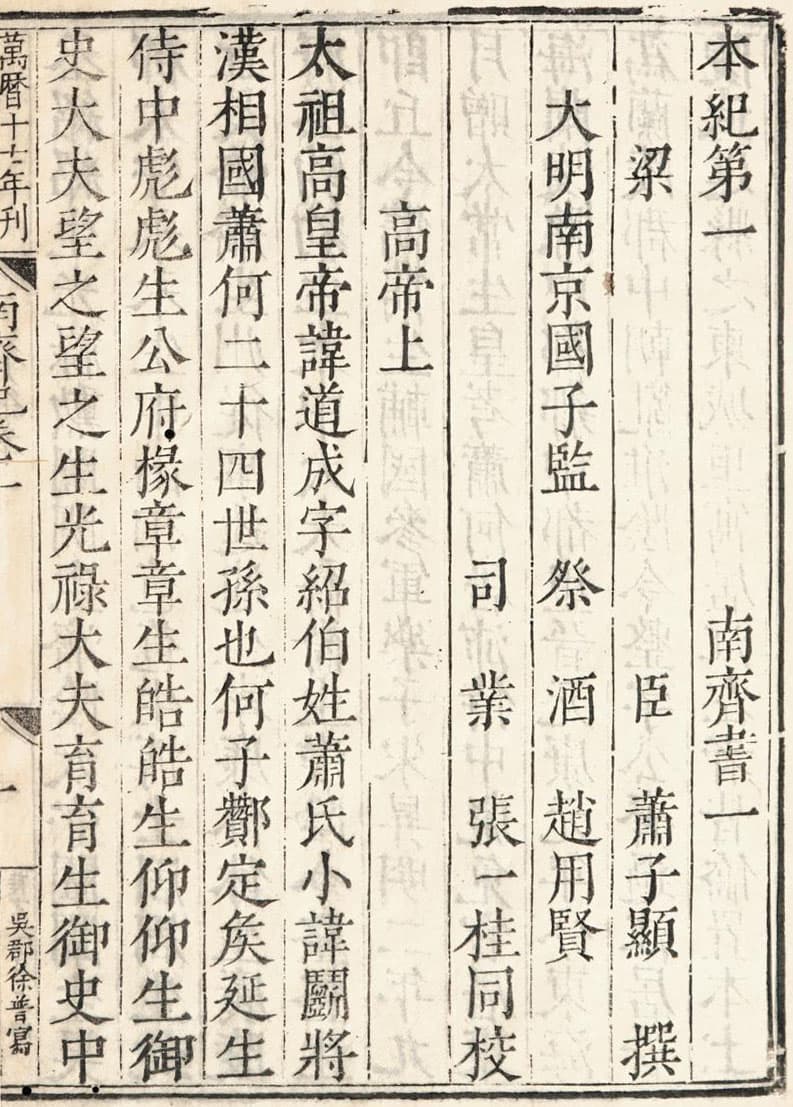 本紀第一 南齊書一
梁 臣 蕭子顯 撰
大明南京國子監 祭 酒 趙用賢
司 業 張一桂同校
高帝上
太祖高皇帝諱道成字紹伯姓蕭氏小諱鬭將
漢相國蕭何二十四世孫也何子酇定矦延生
侍中彪彪生公府掾章章生皓皓生仰仰生御
史大夫望之望之生光祿大夫育育生御史中
萬曆十七年刊
南齊紀卷一
一
吳郡徐普寫